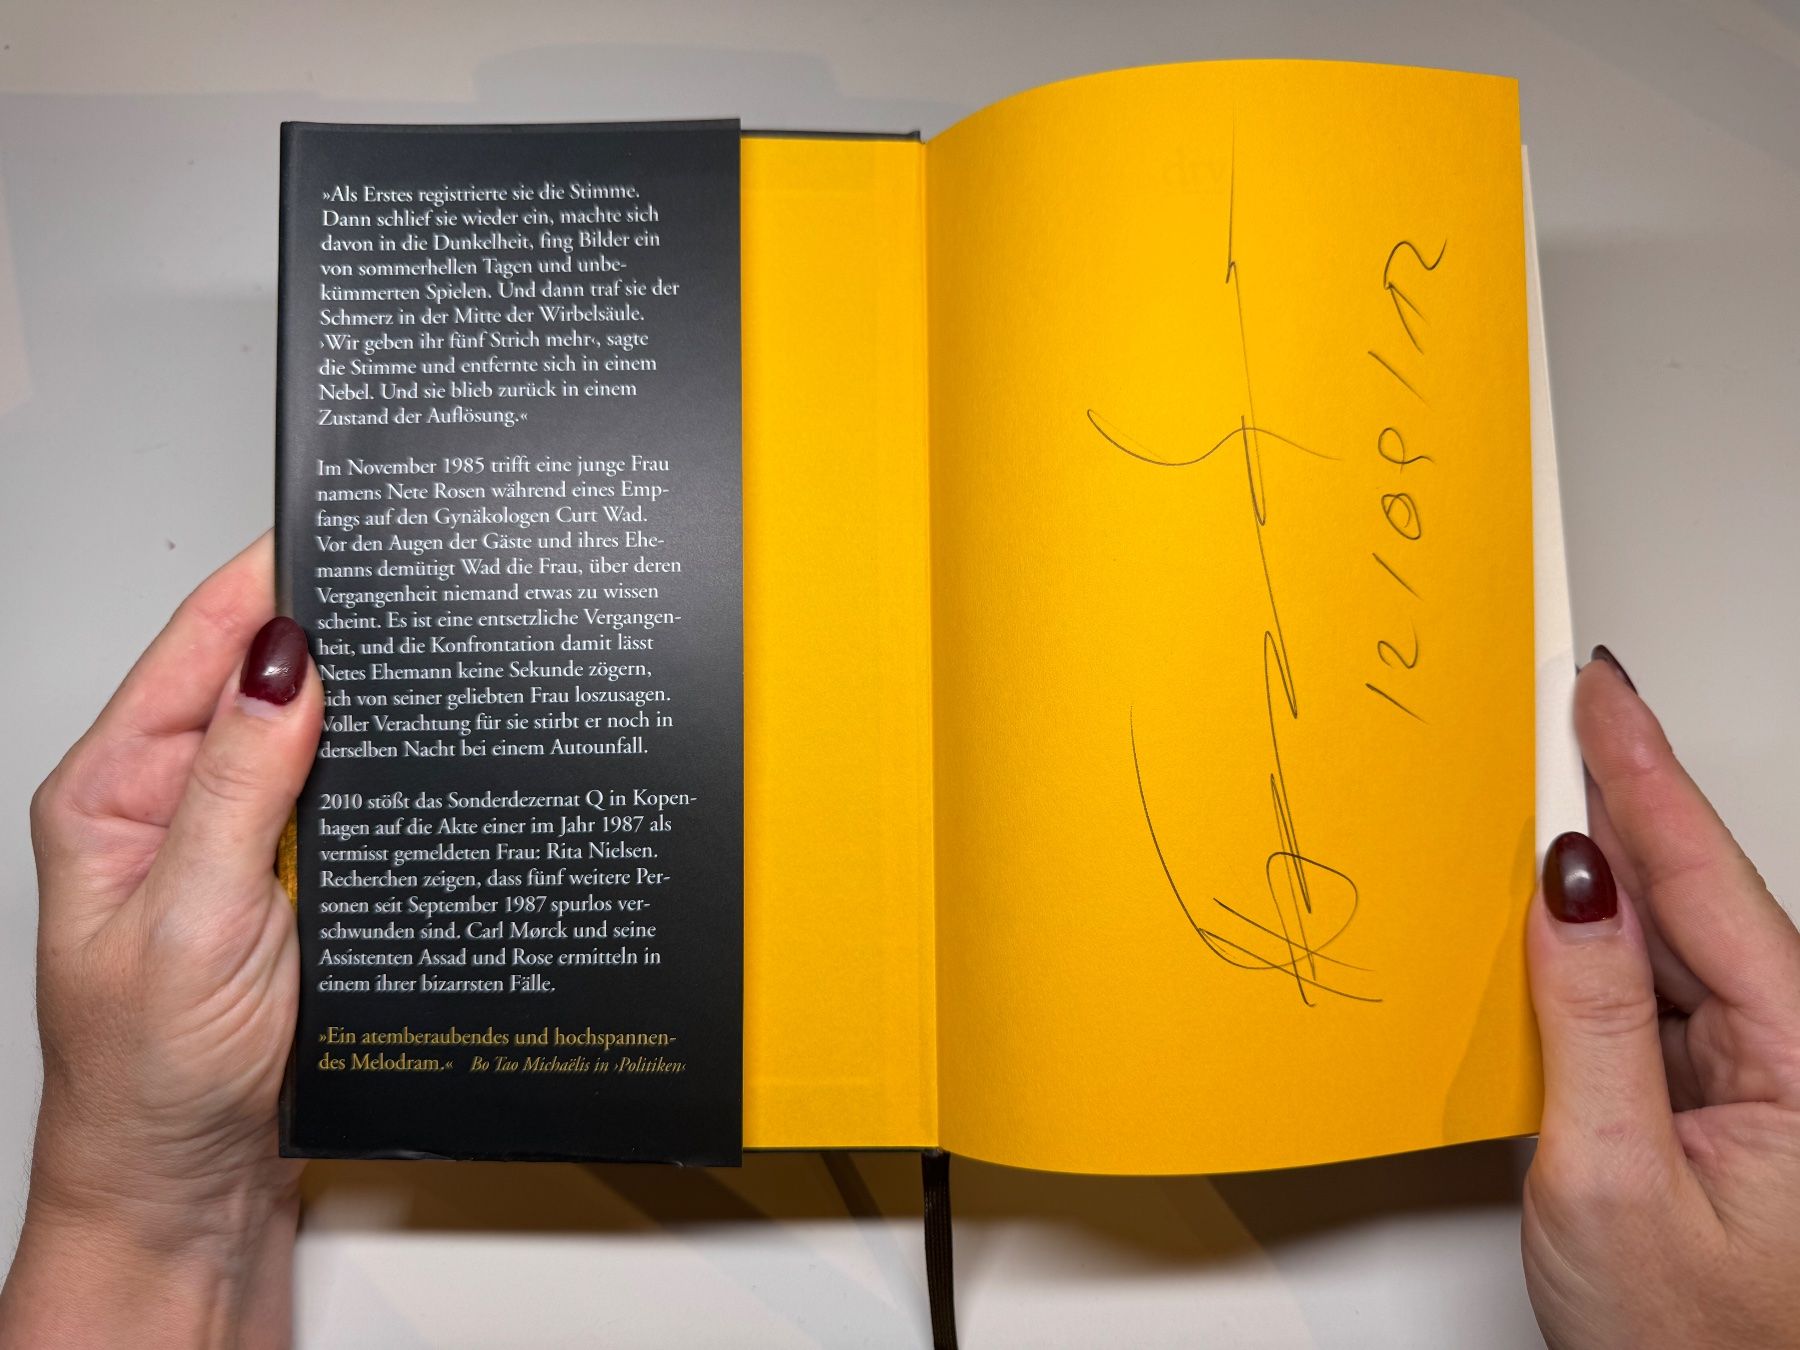 »Als Erstes registrierte sie die Stimme.
Dann schlief sie wieder ein, machte sich
davon in die Dunkelheit, fing Bilder ein
von sommerhellen Tagen und unbe-
kümmerten Spielen. Und dann traf sie der
Schmerz in der Mitte der Wirbelsäule.
›Wir geben ihr fünf Strich mehr‹, sagte
die Stimme und entfernte sich in einem
Nebel. Und sie blieb zurück in einem
Zustand der Auflösung.«
Im November 1985 trifft eine junge Frau
namens Nete Rosen während eines Emp-
fangs auf den Gynäkologen Curt Wad.
Vor den Augen der Gäste und ihres Ehe-
manns demütigt Wad die Frau, über deren
Vergangenheit niemand etwas zu wissen
scheint. Es ist eine entsetzliche Vergangen-
heit, und die Konfrontation damit lässt
Netes Ehemann keine Sekunde zögern,
sich von seiner geliebten Frau loszusagen.
Voller Verachtung für sie stirbt er noch in
derselben Nacht bei einem Autounfall.
2010 stößt das Sonderdezernat Q in Kopen-
hagen auf die Akte einer im Jahr 1987 als
vermisst gemeldeten Frau: Rita Nielsen.
Recherchen zeigen, dass fünf weitere Per-
sonen seit September 1987 spurlos ver-
schwunden sind. Carl Mørck und seine
Assistenten Assad und Rose ermitteln in
einem ihrer bizarrsten Fälle.
»Ein atemberaubendes und hochspannen-
des Melodram.« Bo Tao Michaëlis in ›Politiken‹
12/08/12